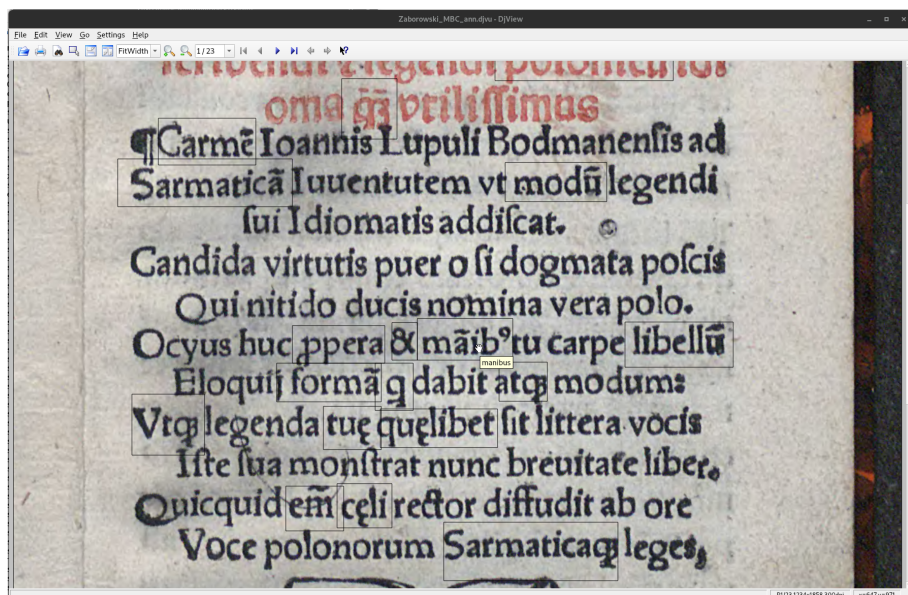 Zaborowski_MBC_ann.djvu - DjView
File Edit View Go Settings Help
FitWidth 1 / 23
oma q̃ȝ vtiliſſimus
¶Carmẽ Ioannis Lupuli Bodmanenſis ad
Sarmaticã Iuuentutem vt modũ legendi
ſui Idiomatis addiſcat.
Candida virtutis puer o ſi dogmata poſcis
Qui nitido ducis nomina vera polo.
Ocyus huc ꝓpera & mãibꝰ tu carpe libellũ
manibus
Eloquij formã q dabit atqꝫ modum:
Vtqꝫ legenda tuę quęlibet ſit littera vocis
Iſte ſua monſtrat nunc breuitate liber.
Quicquid em̃ cęli rector diffudit ab ore
Voce polonorum Sarmaticaqꝫ leges,